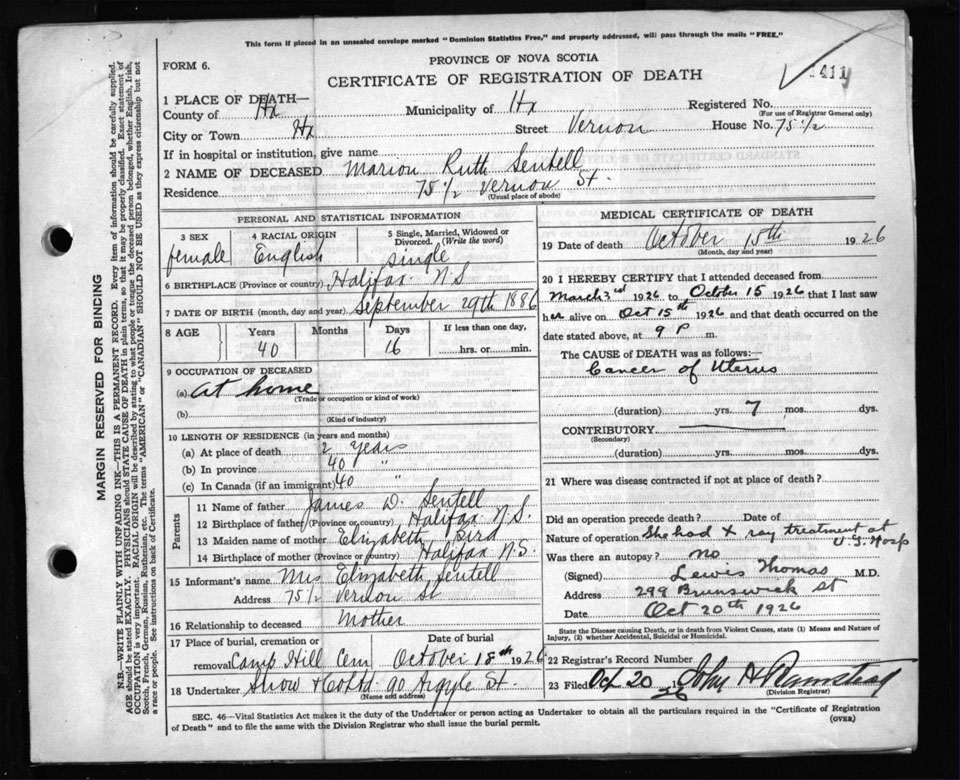 This form if placed in an unsealed envelope marked "Dominion Statistics Free," and properly addressed, will pass through the mails "FREE."
FORM 6.
PROVINCE OF NOVA SCOTIA
CERTIFICATE OF REGISTRATION OF DEATH
1411
1 PLACE OF DEATH—
County of Hx Municipality of Hx Registered No.
(For use of Registrar General only)
City or Town Hx Street Vernon House No. 75 1/2
If in hospital or institution, give name
2 NAME OF DECEASED Marion Ruth Sentell
Residence 75 1/2 Vernon St.
(Usual place of abode)
PERSONAL AND STATISTICAL INFORMATION
3 SEX 4 RACIAL ORIGIN 5 Single, Married, Widowed or Divorced. (Write the word)
female English single
6 BIRTHPLACE (Province or country) Halifax N.S
7 DATE OF BIRTH (month, day and year) September 29th 1886
8 AGE Years Months Days If less than one day,
40 16 hrs. or min.
9 OCCUPATION OF DECEASED
(a) At home
(Trade or occupation or kind of work)
(b)
(Kind of industry)
10 LENGTH OF RESIDENCE (in years and months)
(a) At place of death 2 years
(b) In province 40 "
(c) In Canada (if an immigrant) 40 "
Parents
11 Name of father James D. Sentell
12 Birthplace of father (Province or country) Halifax N.S.
13 Maiden name of mother Elizabeth
14 Birthplace of mother (Province or country) Halifax N.S.
15 Informant's name Mrs Elizabeth Sentell
Address 75 1/2 Vernon St
16 Relationship to deceased Mother
17 Place of burial, cremation or removal Date of burial
Camp Hill Cem October 18th 1926
18 Undertaker Snow & Co Ltd 90 Argyle St.
(Name and address)
MEDICAL CERTIFICATE OF DEATH
19 Date of death October 15th 1926
(Month, day and year)
20 I HEREBY CERTIFY that I attended deceased from
March 3rd 1926 to October 15 1926 that I last saw
her alive on Oct 15th 1926 and that death occurred on the
date stated above, at 9 P m.
The CAUSE OF DEATH was as follows:—
Cancer of Uterus
(duration) yrs. 7 mos. dys.
CONTRIBUTORY
(Secondary)
(duration) yrs. mos. dys.
21 Where was disease contracted if not at place of death?
Did an operation precede death? Date of
Nature of operation She had X ray treatment at
V. G. Hosp
Was there an autopsy? no
(Signed) Lewis Thomas M.D.
Address 299 Brunswick St
Date Oct 20th 1926
State the Disease causing Death, or in death from Violent Causes, state (1) Means and Nature of Injury, (2) whether Accidental, Suicidal or Homicidal.
22 Registrar's Record Number
23 Filed Oct 20 1926 John A
(Division Registrar)
SEC. 46—Vital Statistics Act makes it the duty of the Undertaker or person acting as Undertaker to obtain all the particulars required in the "Certificate of Registration
of Death" and to file the same with the Division Registrar who shall issue the burial permit. (OVER)
MARGIN RESERVED FOR BINDING
N.B.—WRITE PLAINLY WITH UNFADING INK—THIS IS A PERMANENT RECORD. Every item of information should be carefully supplied.
AGE should be stated EXACTLY. PHYSICIANS should STATE CAUSE OF DEATH in plain terms, so that it may be properly classified. Exact statement of
OCCUPATION is very important. RACIAL ORIGIN will be described by stating to what people or tongue the deceased person belonged, whether English, Irish,
Scotch, French, German, Russian, Ruthenian, etc. The terms "AMERICAN" or "CANADIAN" SHOULD NOT BE USED as they express citizenship but not
a race or people. See instructions on back of Certificate.